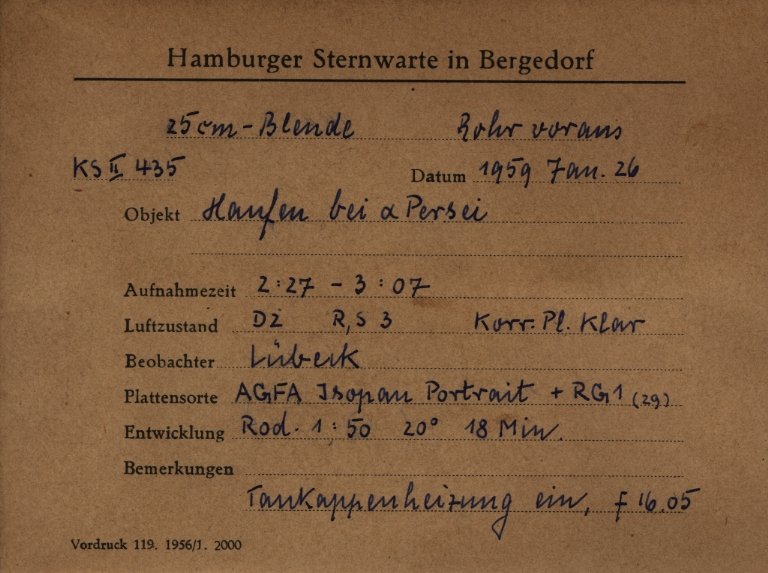 Hamburger Sternwarte in Bergedorf
25cm-Blende Rohr voraus
KS II 435 Datum 1959 Jan. 26
Objekt Haufen bei α Persei
Aufnahmezeit 2:27 - 3:07
Luftzustand D2 R,S 3 Korr. Pl. Klar
Beobachter Lübeck
Plattensorte AGFA Isopan Portrait + RG1 (29)
Entwicklung Rod. 1:50 20° 18 Min.
Bemerkungen
Taukappenheizung ein, f 16.05
Vordruck 119. 1956/1. 2000